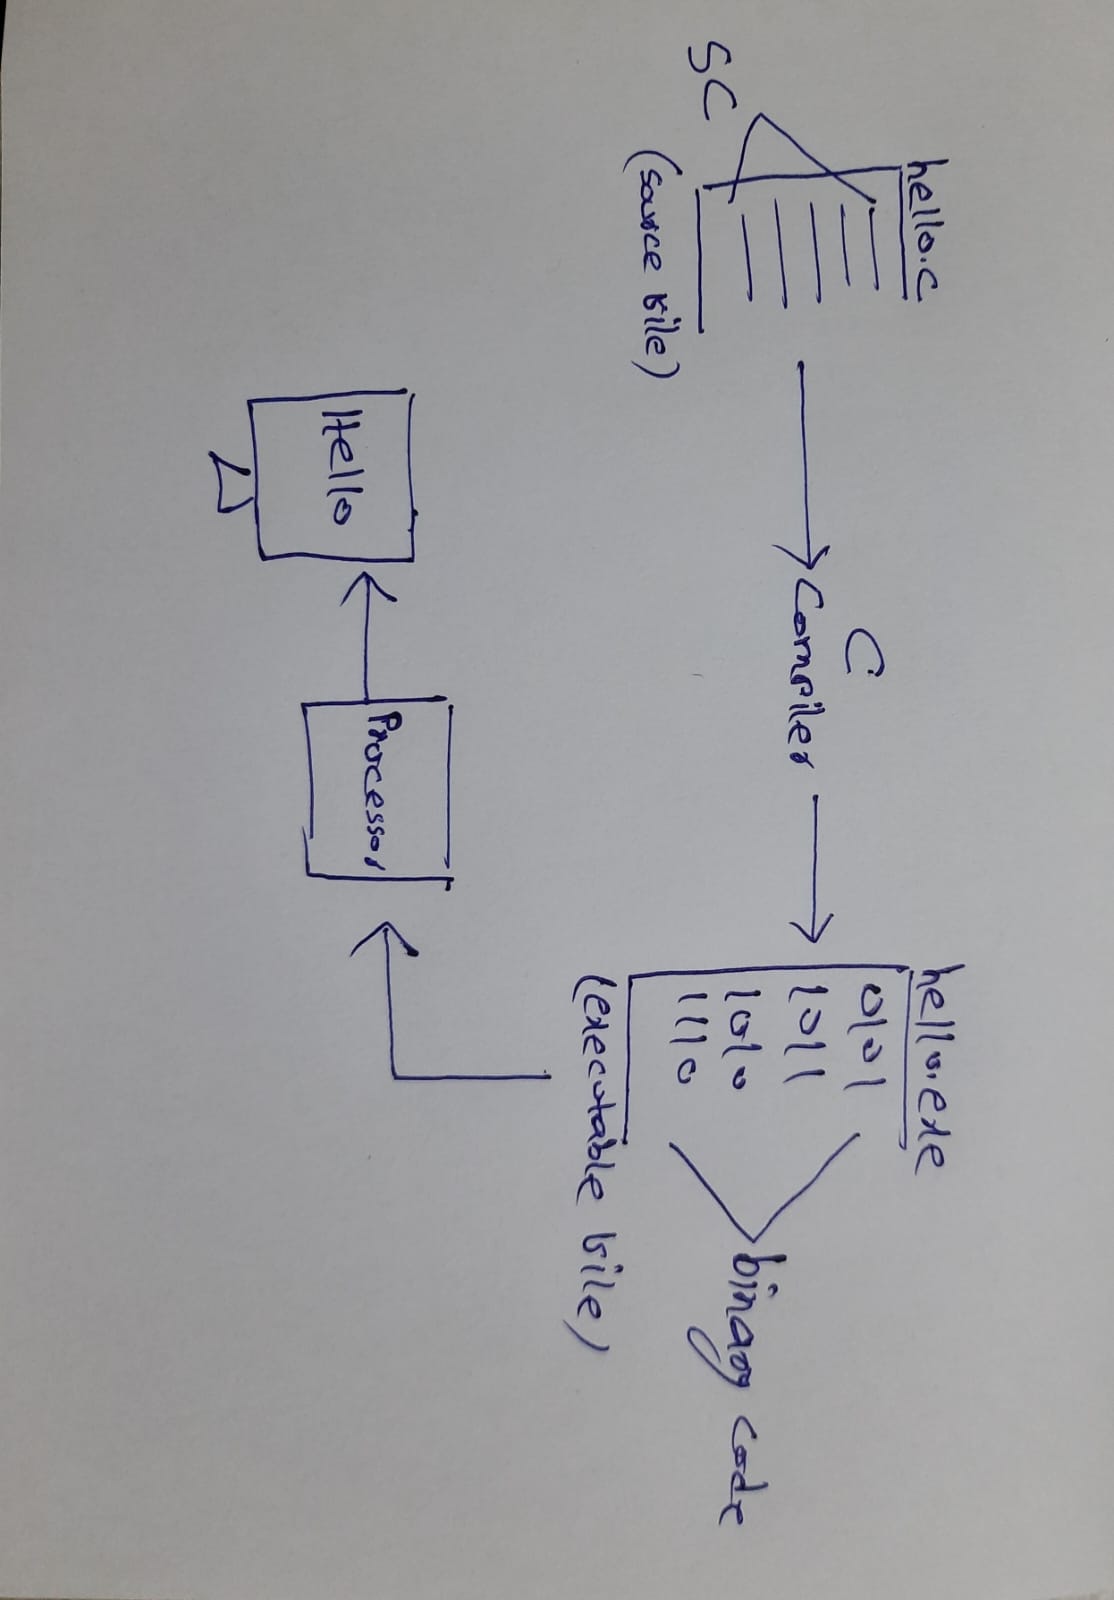 hello.c
SC
(source file)
C
Compiler
hello.exe
0101
1011
1010
1110
binary code
(executable file)
Processor
Hello